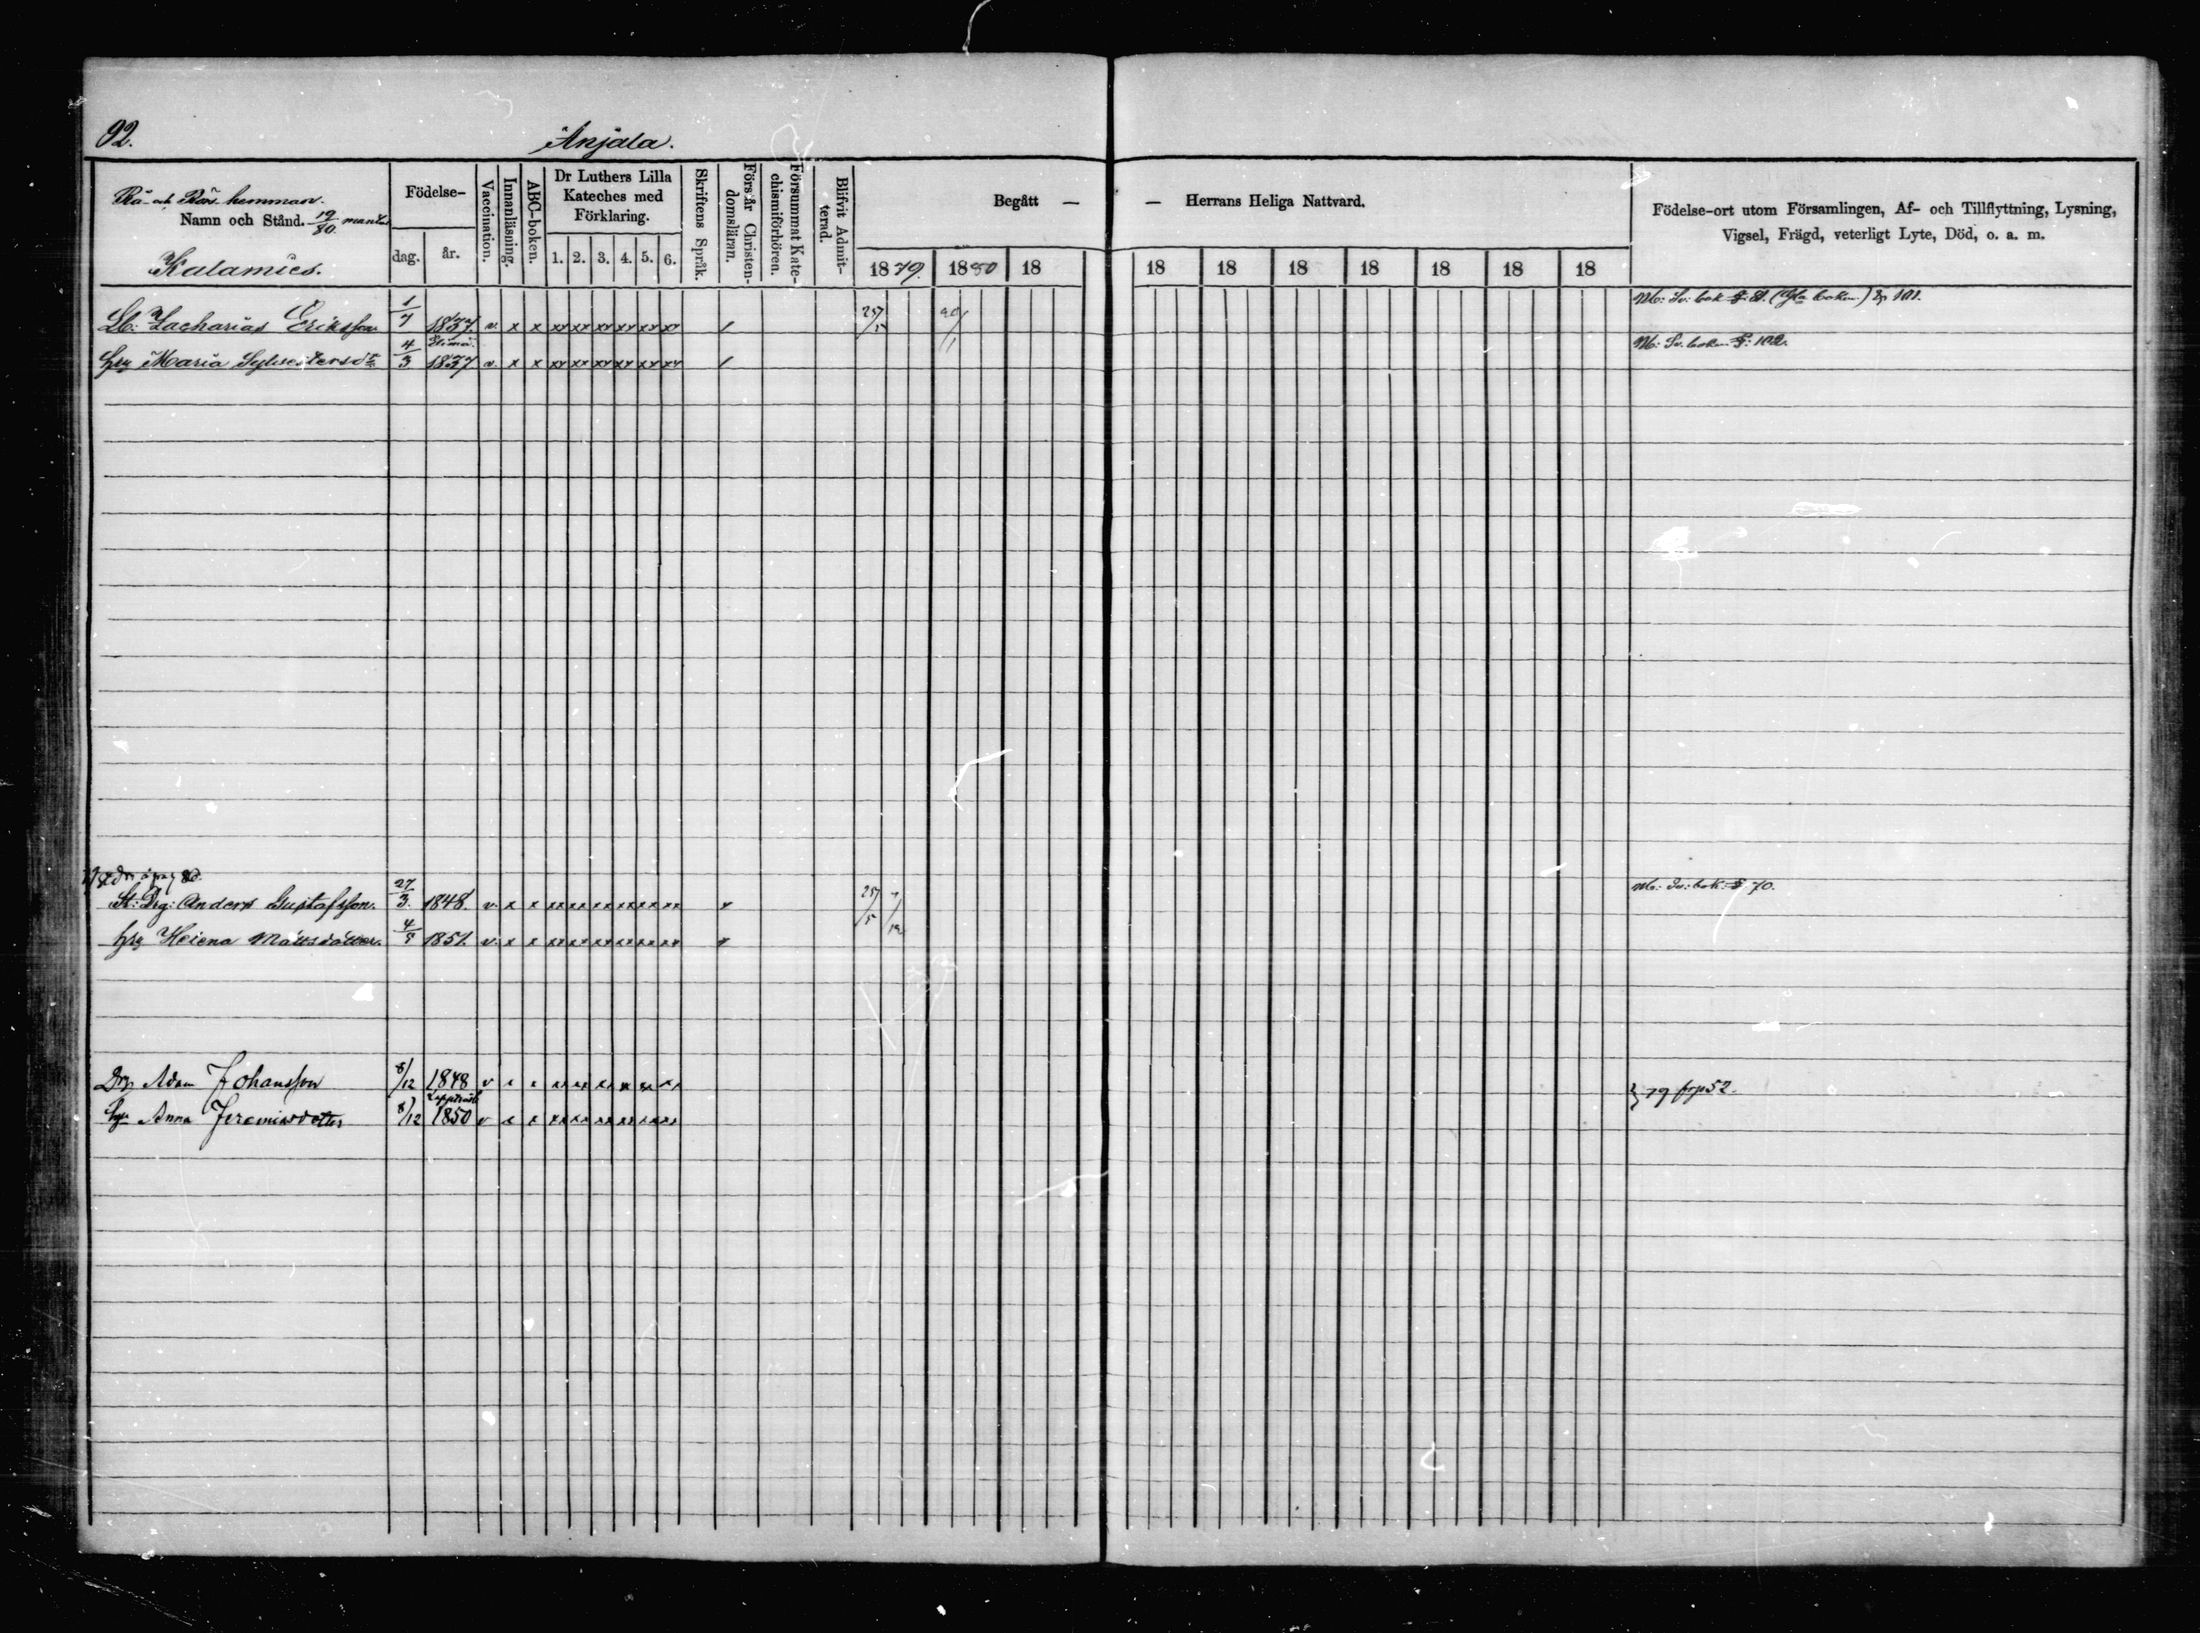 92. Anjala.
Rå- och Rörs hemman.
Namn och Stånd. 19/80 mantal
Kalamies.
Födelse-
dag. år.
Vaccination.
Innanläsning.
ABC-boken.
Dr Luthers Lilla
Kateches med
Förklaring.
1. 2. 3. 4. 5. 6.
Skriftens Språk.
Förstår Christen-
domsläran.
Försummat Kate-
chismiförhören.
Blifvit Admit-
terad.
Begått — — Herrans Heliga Nattvard.
1879. 1880 18 18 18 18 18 18 18 18
Födelse-ort utom Församlingen, Af- och Tillflyttning, Lysning,
Vigsel, Frägd, veterligt Lyte, Död, o. a. m.
Zacharias Eriksson. 1/7 1837. v. x x xx xx xx xx xx xx / 25/5 101.
Elimä.
Hu Maria Sylvestersdr 4/3 1837 v. x x xx xx xx xx xx xx / 102.
St: Drg: Anders Gustafsson. 27/3 1848. v. x x xx xx xx xx xx xx 25/5 70.
Hu Helena Mattsdotter. 1851. v. x x xx xx xx xx xx xx
Drg Adam Johansson 8/12 1848 v x x xx xx xx xx xx xx
} 79 fr p 52.
Hu Anna Jeremiasdotter 8/12 1850 v x x xx xx xx xx xx xx